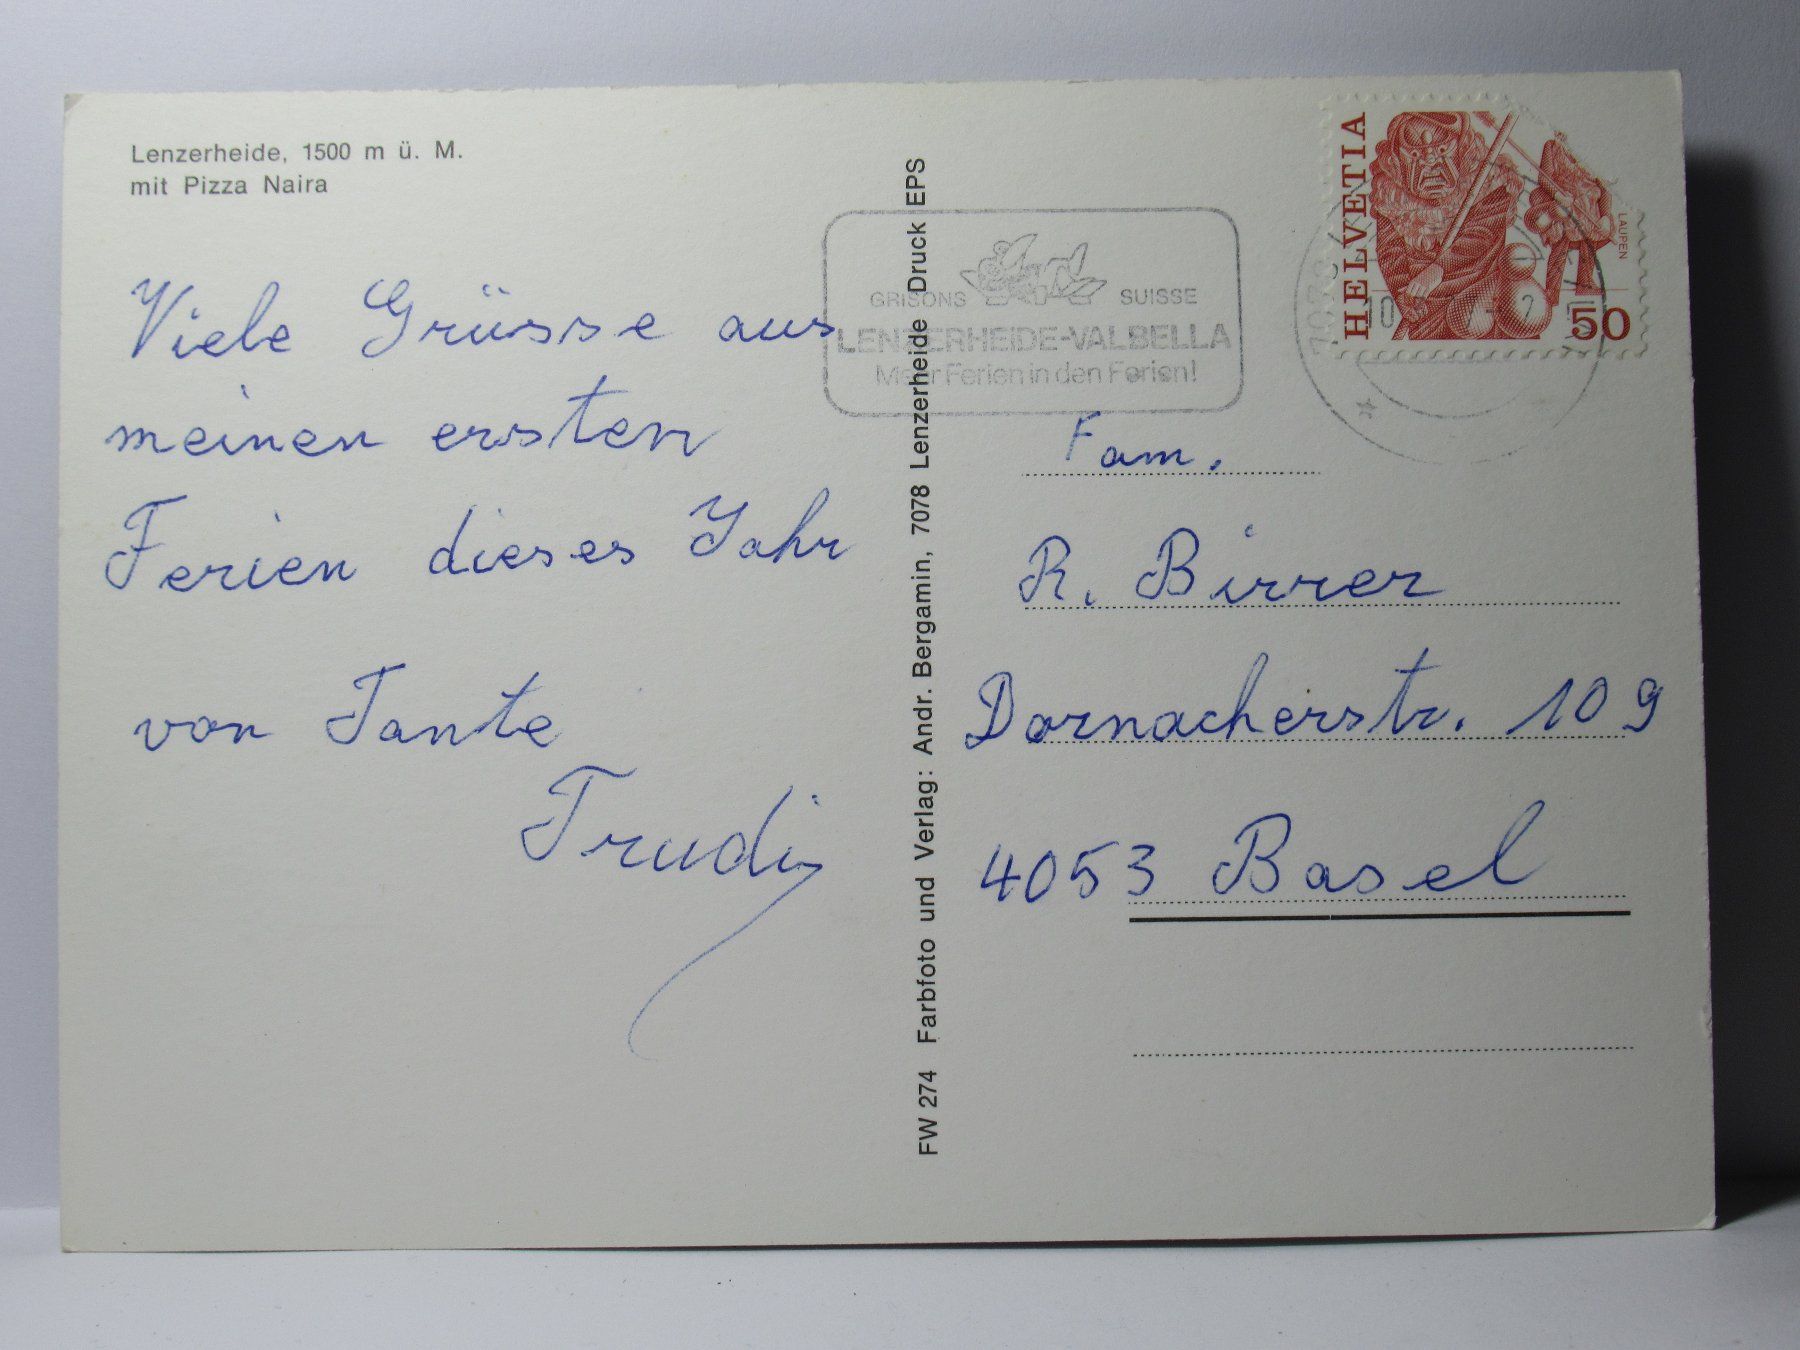 Lenzerheide, 1500 m ü. M.
mit Pizza Naira
Viele Grüsse aus
meinen ersten
Ferien dieses Jahr
von Tante
Trudi
FW 274 Farbfoto und Verlag: Andr. Bergamin, 7078 Lenzerheide Druck EPS
GRISONS SUISSE
LENZERHEIDE-VALBELLA
Meer Ferien in den Ferien!
HELVETIA
LAUPEN
50
7078
10
Fam.
R. Birrer
Dornacherstr. 109
4053 Basel